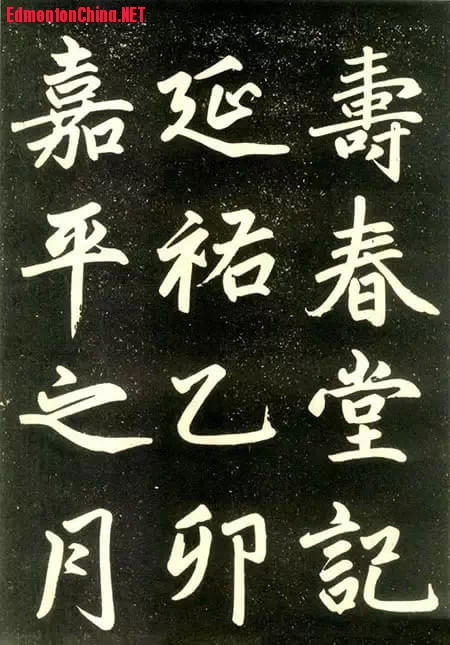 EdmontonChina.NET
壽春堂記
延祐乙卯
嘉平之月